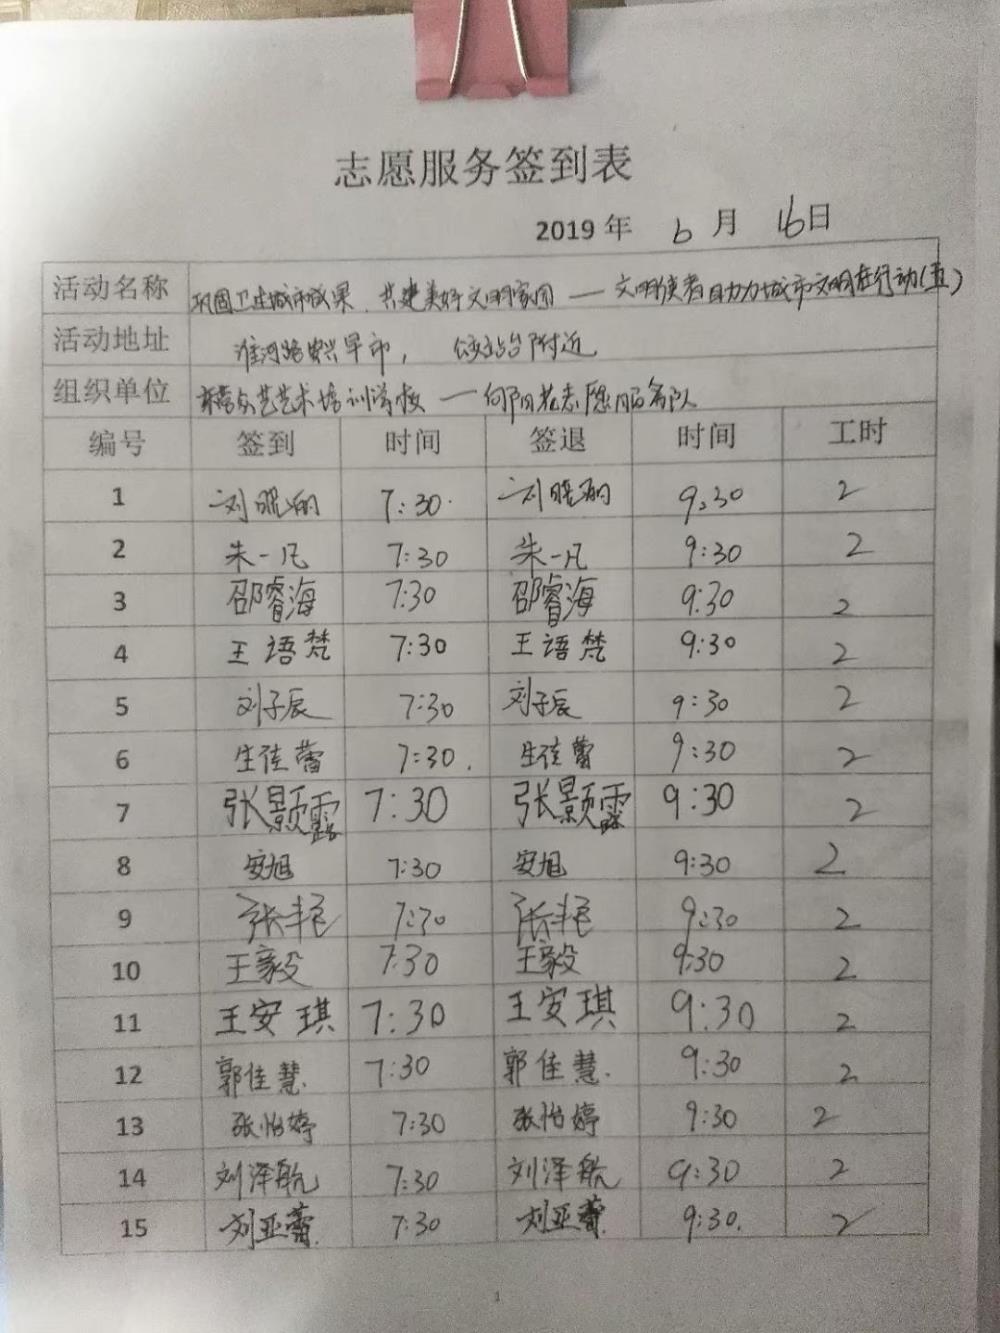 志愿服务签到表
2019 年 6 月 16日
活动名称 巩固卫生城市成果、共建美好文明家园——文明使者助力城市文明在行动(五)
活动地址 淮河路 早市, 公交站台附近
组织单位 艺艺术培训学校——向阳花志愿服务队
编号 签到 时间 签退 时间 工时
1 刘晓 7:30 刘晓 9:30 2
2 朱一凡 7:30 朱一凡 9:30 2
3 邵睿海 7:30 邵睿海 9:30 2
4 王语梵 7:30 王语梵 9:30 2
5 刘子辰 7:30 刘子辰 9:30 2
6 生佳蕾 7:30. 生佳蕾 9:30 2
7 张颢露 7:30 张颢露 9:30 2
8 安旭 7:30 安旭 9:30 2
9 张丰艳 7:30 张丰艳 9:30 2
10 王毅 7:30 王毅 9:30 2
11 王安琪 7:30 王安琪 9:30 2
12 郭佳慧. 7:30 郭佳慧. 9:30 2
13 张怡婷 7:30 张怡婷 9:30 2
14 刘泽航 7:30 刘泽航 9:30 2
15 刘亚蕾. 7:30 刘亚蕾. 9:30. 2
1